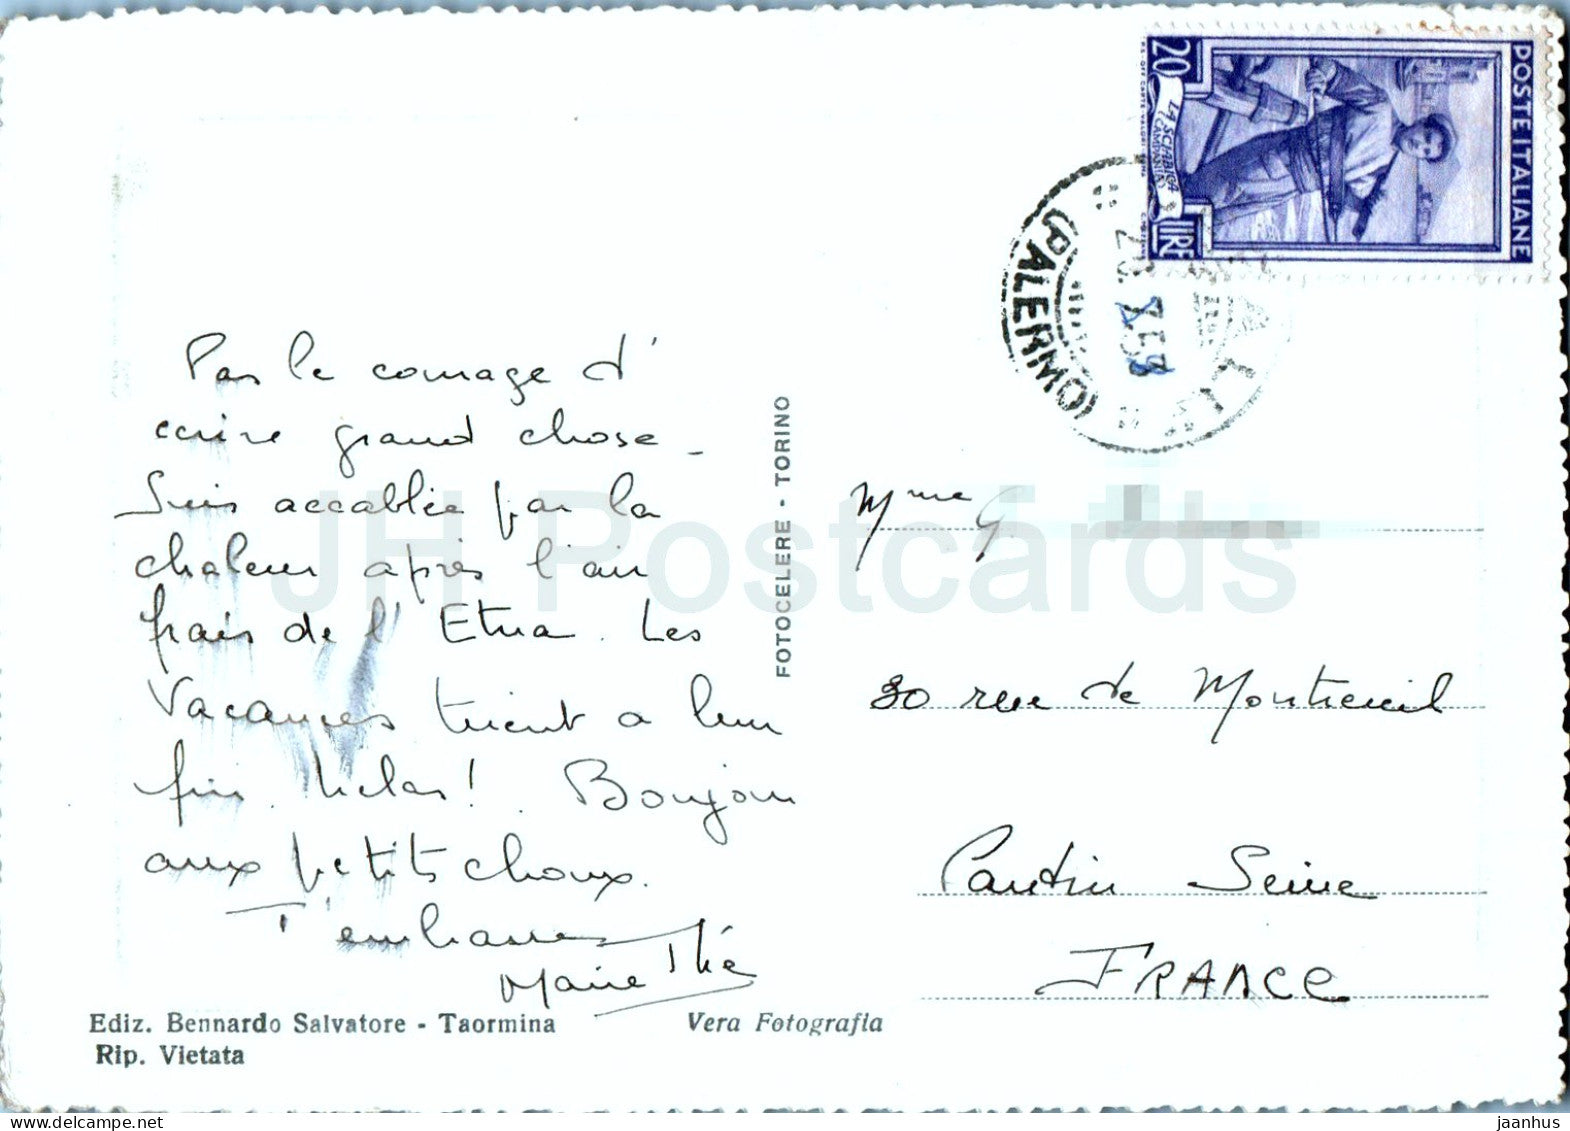 Pas le courage d'
écrire grand chose _
Suis accablée par la
chaleur après l'air
frais de l'Etna. Les
Vacances tirent a leur
fin. hélas! . Bonjour
aux petits choux.
J'embrasse
Marie Thé
Ediz. Bennardo Salvatore - Taormina
Rip. Vietata
Vera Fotografia
FOTOCELERE - TORINO
POSTE ITALIANE
20 LIRE
LA SCIABICA
(CAMPANIA)
(PALERMO)
Mme G
30 rue de Montreuil
Pantin Seine
FRANCE
JH Postcards
jaanhus